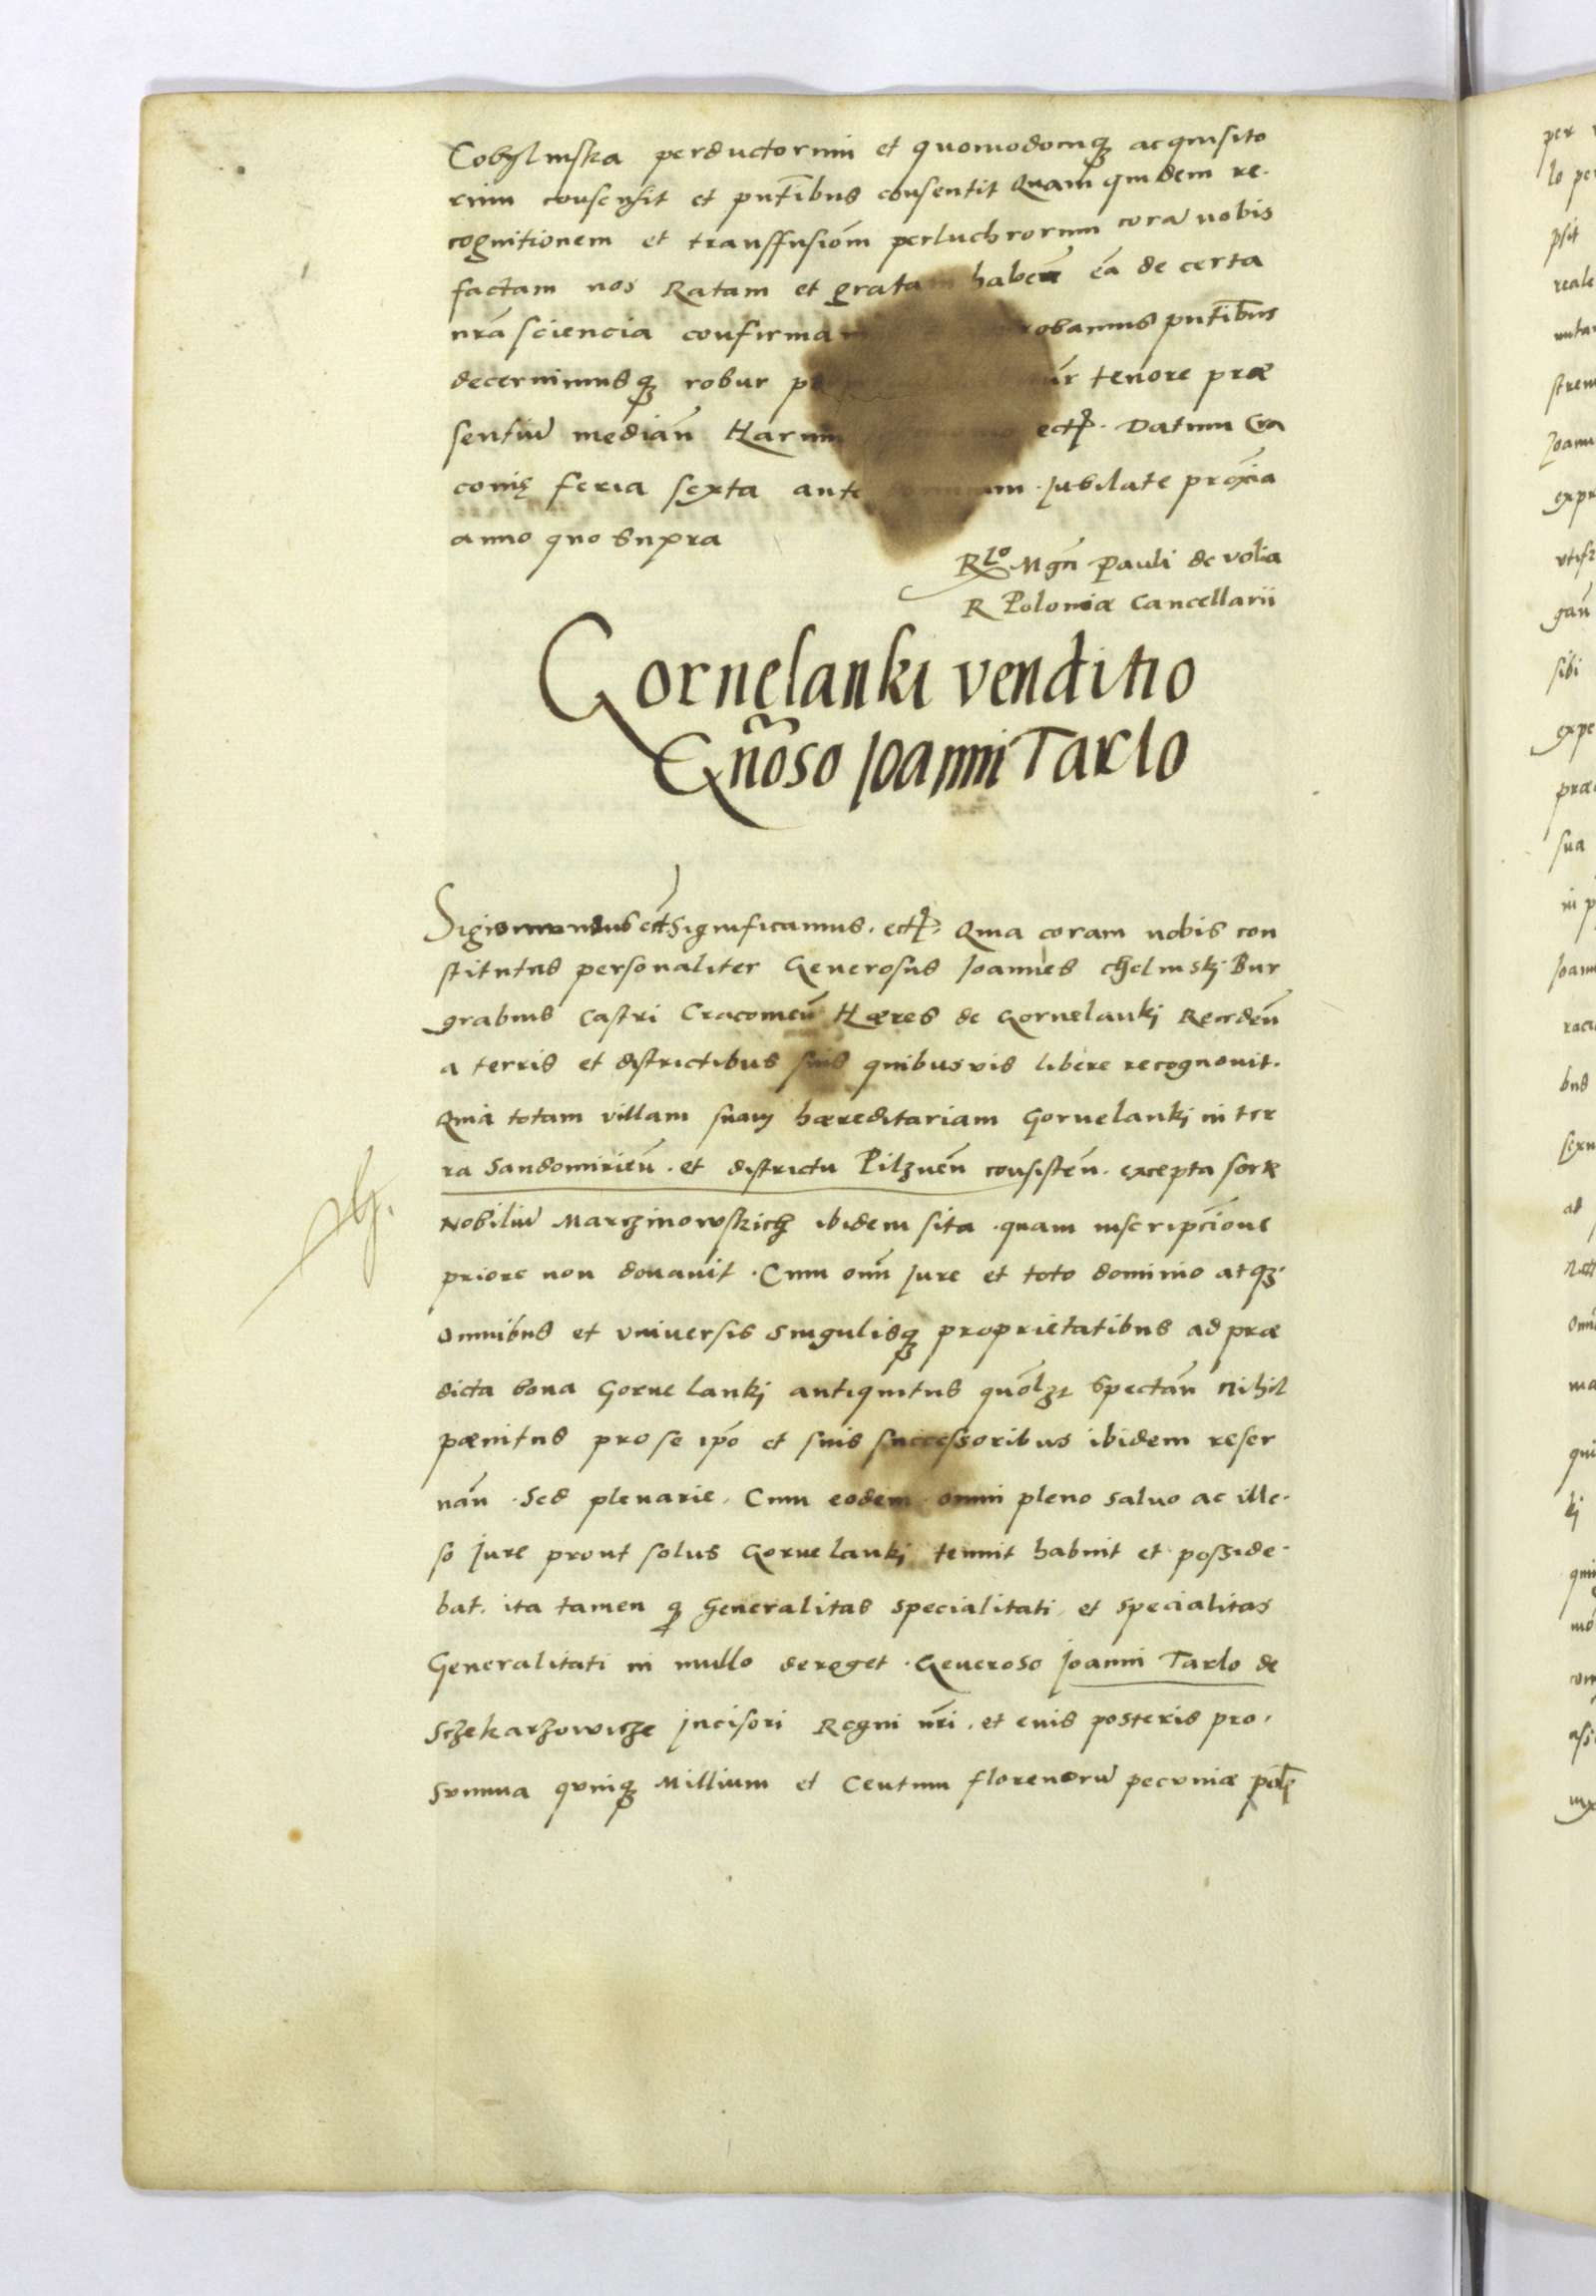 Cobylinska perductorum et quomodocunq acquisito
rum consensit et pñtibus consentit Quam quidem re-
cognitionem et transfusiom perluchrorum cora nobis
factam nos Ratam et gratam habeñ eã de certa
nrã sciencia confirma robamus pñtibus
decernimusq robur tenore præ
sentiu mediañ Harum ect. Datum Cra
covię feria sexta ante Jubilate proxĩa
anno quo supra
Rlo Mgñ Pauli de volia
R Poloniæ Cancellarii
Gornelanki venditio
Gñoso Joanni Tarlo
Sigismundus ect Significamus. ect. Quia coram nobis con
stitutus personaliter Generosus Joannes Chelmskj Bur
grabius Castri Cracovieñ Hæres de Gornelankj Recedeñ
a terris et districtibus suis quibusvis libere recognovit.
Quia totam villam suam hæreditariam Gornelankj in ter
ra Sandomirieñ. et districtu Pilzneñ consisteñ. excepta sorte
Nobiliu Marczinowskich ibidem sita. quam inscripcĩone
priore non donavit. Cum omñ Jure et toto dominio atqz.
omnibus et universis singulisq proprietatibus ad præ
dicta bona Gornelankj antiquitus quõlzt spectañ Nihil
pænitus pro se ipõ et suis successoribus ibidem reser
vañ. Sed plenarie. Cum eodem omni pleno salvo ac ille-
so Jure prout solus Gornelankj tenuit habuit et posside-
bat. ita tamen q Generalitas specialitati et specialitas
Generalitati in nullo deroget. Generoso Joanni Tarlo de
Sczekarzowicze Jncisori Regni nrĩ. et eius posteris pro.
summa quinq Millium et Centum florenoru pecuniæ